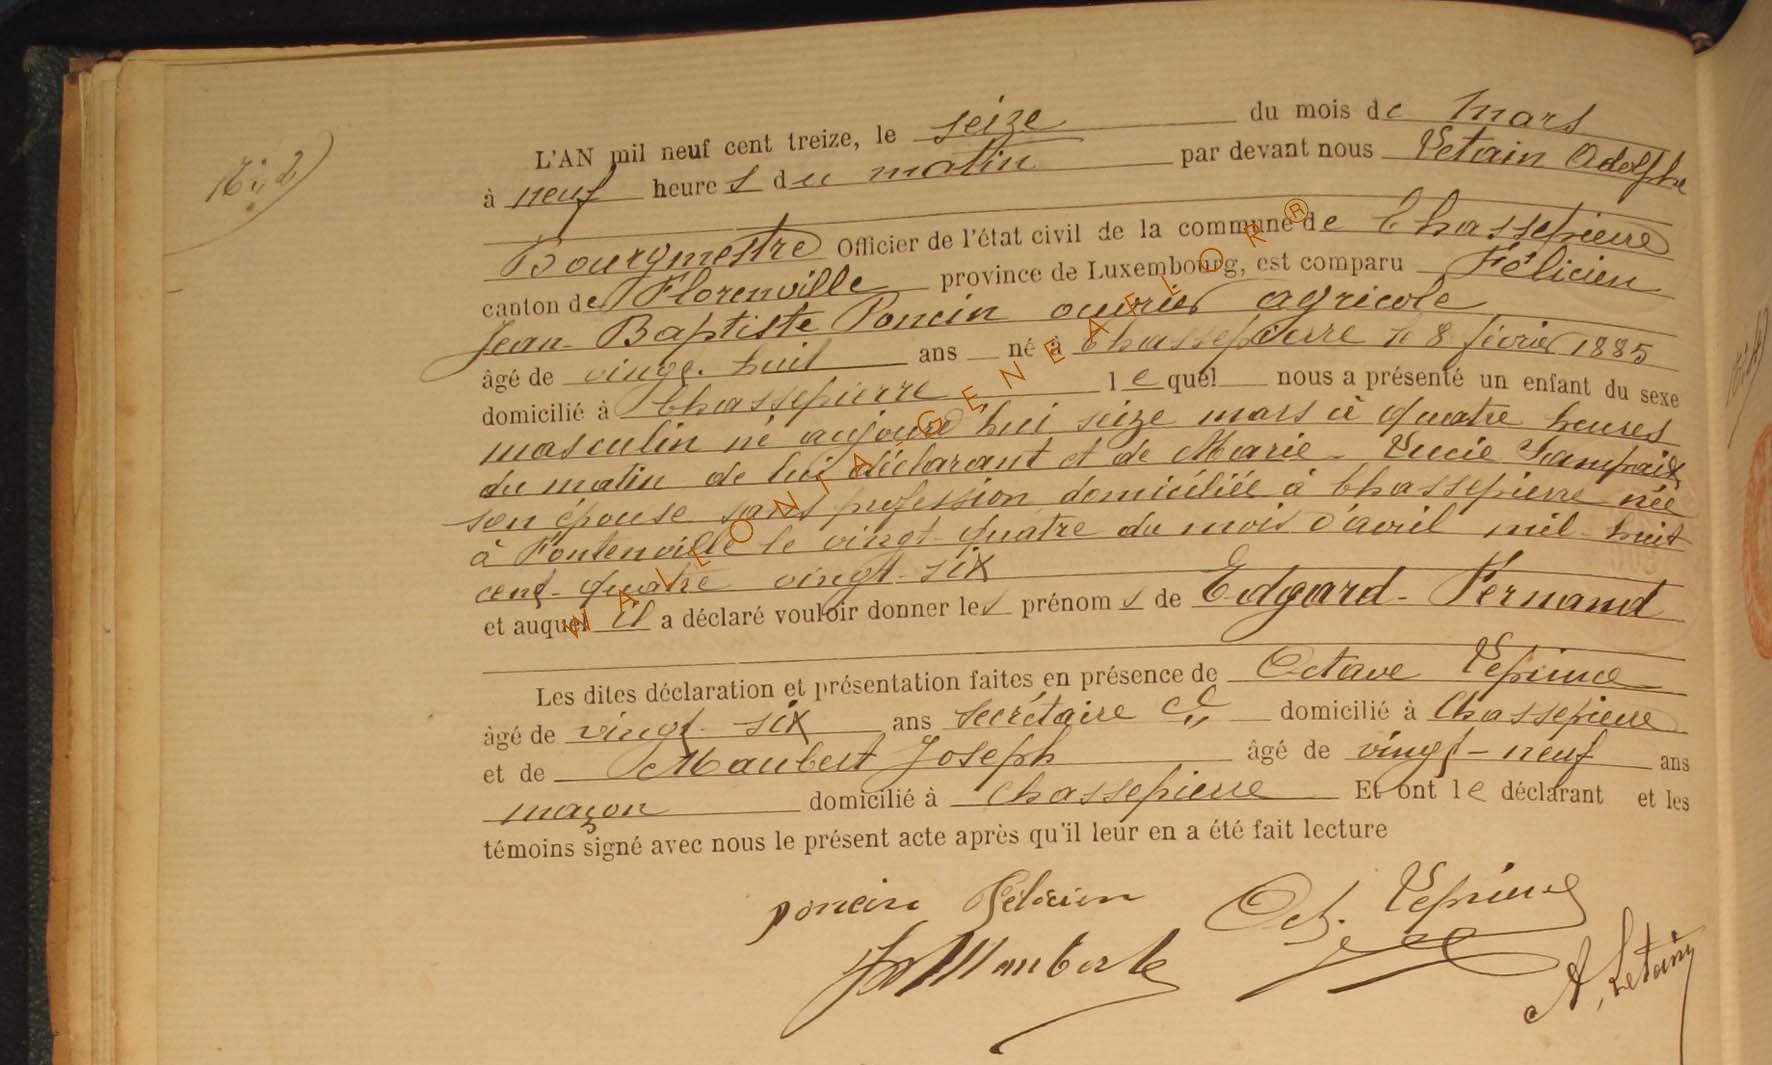 L'AN mil neuf cent treize, le seize du mois de mars
à neuf heures du matin par devant nous Letain Adolphe
Bourgmestre Officier de l'état civil de la commune de Chassepierre
canton de Florenville province de Luxembourg, est comparu Félicien
Jean-Baptiste Poncin ouvrier agricole
âgé de vingt-huit ans né à Chassepierre le 8 février 1885
domicilié à Chassepierre lequel nous a présenté un enfant du sexe
masculin né aujourd'hui seize mars à quatre heures
du matin de lui déclarant et de Marie-Lucie Lampaix
son épouse sans profession domiciliée à Chassepierre née
à Fontenoille le vingt-quatre du mois d'avril mil-huit
cent-quatre vingt-six
et auquel il a déclaré vouloir donner les prénoms de Edgard-Fernand
Les dites déclaration et présentation faites en présence de Octave Lepinne
âgé de vingt-six ans secrétaire cl domicilié à Chassepierre
et de Maubert Joseph âgé de vingt-neuf ans
maçon domicilié à Chassepierre Et ont le déclarant et les
témoins signé avec nous le présent acte après qu'il leur en a été fait lecture
poncin Félicien Oct. Lepinne
Jh Maubert A. Letain
WALLONIA-GENEAFLOR ®